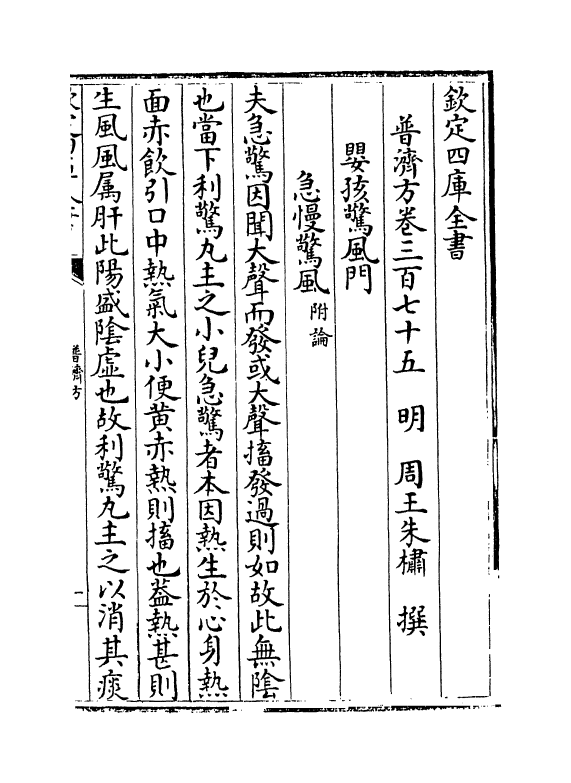 欽定四庫全書
普濟方卷三百七十五 明 周王朱橚 撰
嬰孩驚風門
急慢驚風附論
夫急驚因聞大聲而發或大聲搐發過則如故此無陰
也當下利驚丸主之小兒急驚者本因熱生於心身熱
面赤飲引口中熱氣大小便黄赤熱則搐也葢熱甚則
生風風属肝此陽盛陰虛也故利驚丸主之以消其痰
普濟方